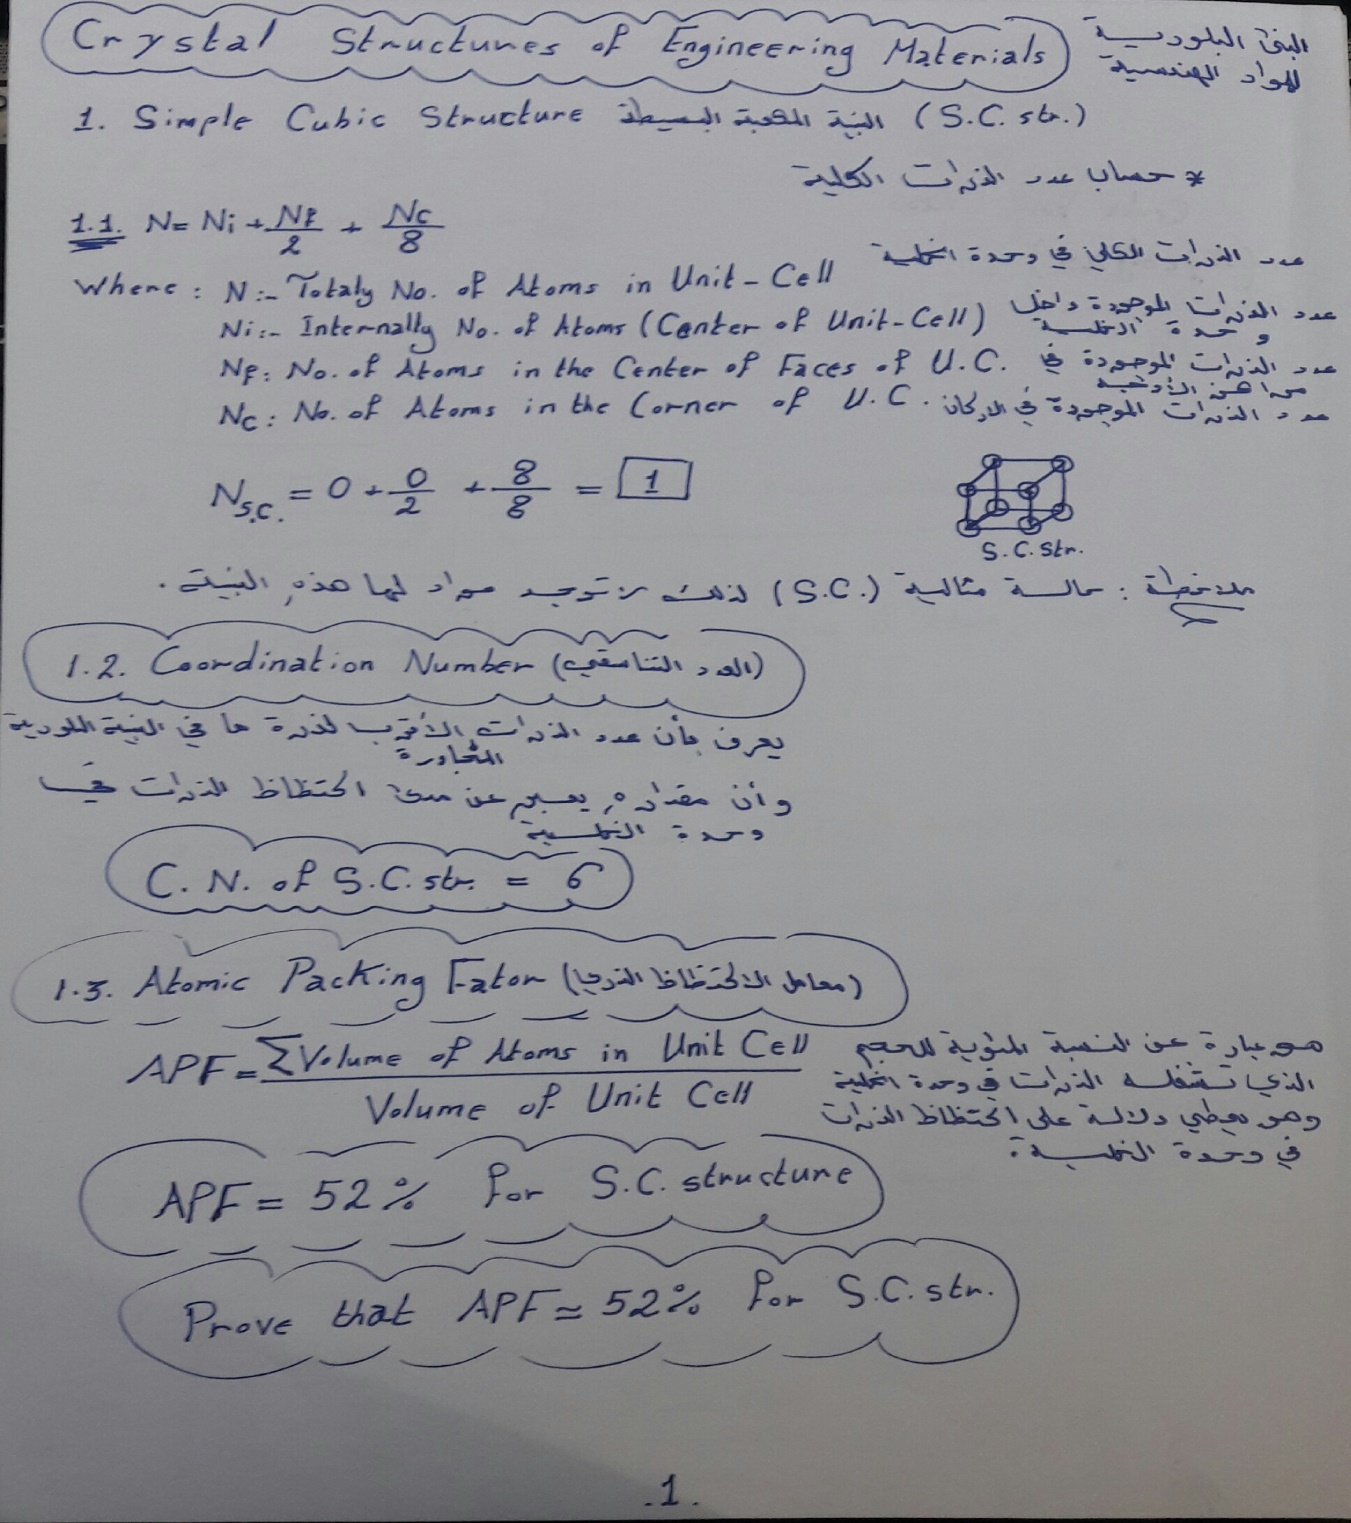 Crystal Structures of Engineering Materials البنى البلورية
للمواد الهندسية
1. Simple Cubic Structure البنية المكعبة البسيطة (S.C. str.)
* حساب عدد الذرات الكلية
1.1. N = Ni + Nf/2 + Nc/8
عدد الذرات الكلي في وحدة الخلية
Where : N :- Totaly No. of Atoms in Unit-Cell
Ni :- Internally No. of Atoms (Center of Unit-Cell) عدد الذرات الموجودة داخل
وحدة الخلية
Nf : No. of Atoms in the Center of Faces of U.C. عدد الذرات الموجودة في
مراكز الأوجه
Nc : No. of Atoms in the Corner of U.C. عدد الذرات الموجودة في الاركان
N S.C. = 0 + 0/2 + 8/8 = 1
S.C. Str.
ملاحظة : حالة مثالية (S.C.) لذلك لا توجد مواد لها هذه البنية .
1.2. Coordination Number (العدد التناسقي)
يعرف بأن عدد الذرات الأقرب لذرة ما في البنية البلورية
المجاورة
وأن مقداره يعبر عن مدى احتظاظ الذرات في
وحدة الخلية
C. N. of S.C. str. = 6
1.3. Atomic Packing Fator (معامل الاحتظاظ الذري)
APF = ΣVolume of Atoms in Unit Cell / Volume of Unit Cell
هو عبارة عن النسبة المئوية للحجم
الذي تشغله الذرات في وحدة الخلية
وهو يعطي دلالة على احتظاظ الذرات
في وحدة الخلية .
APF = 52% for S.C. structure
Prove that APF ≃ 52% for S.C. str.
.1.